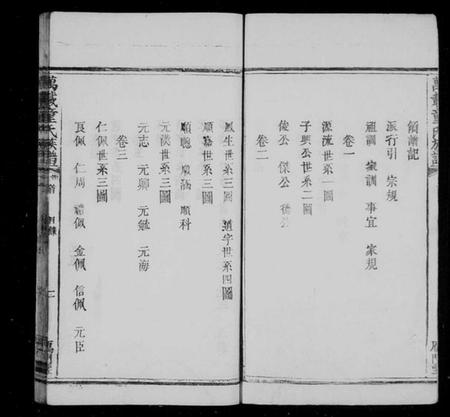 領譜記
派行引 宗規
祖訓 家訓 事宜 家規
卷一
源流世系一圖
子興公世系二圖
俊公 傑公
卷二
鳳生世系三圖 道字世系四圖
順嘉世系三圖
順聰 順科
元漢世系三圖
元志 元卿 元鉞 元海
卷三
仁佩世系三圖
良佩 仁周 禮佩 金佩 信佩 元臣
萬載童氏族譜 卷首 目錄
萬載童氏族譜